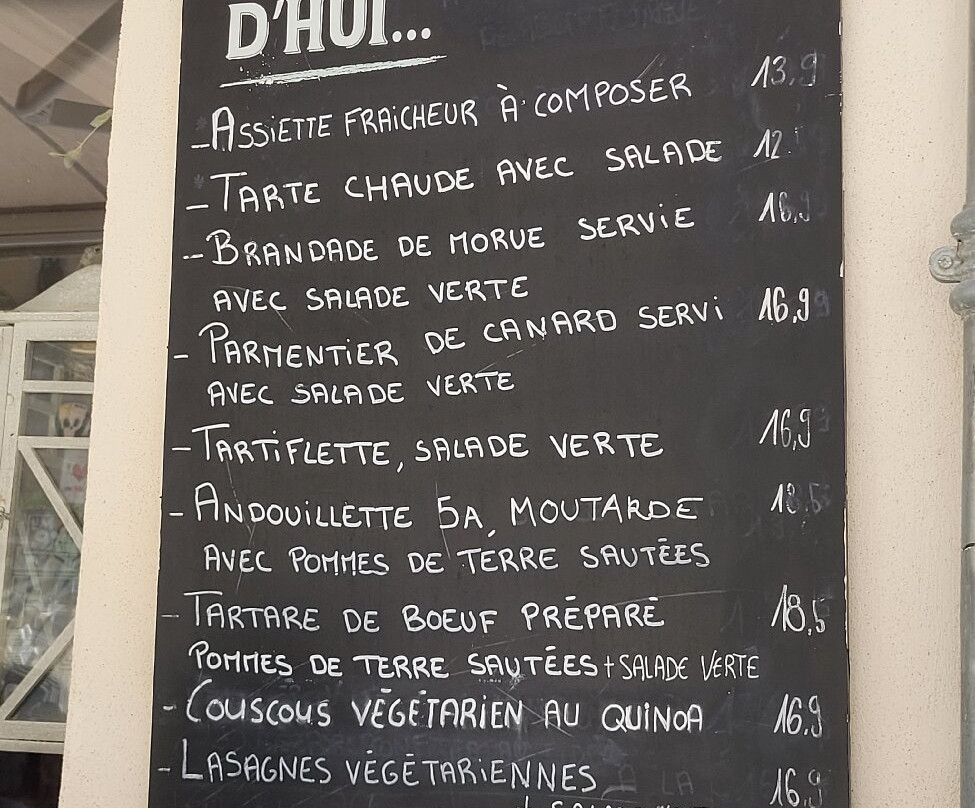 D'HUI...
- ASSIETTE FRAICHEUR À COMPOSER 13.9
- TARTE CHAUDE AVEC SALADE 12
- BRANDADE DE MORUE SERVIE 16,9
AVEC SALADE VERTE
- PARMENTIER DE CANARD SERVI 16,9
AVEC SALADE VERTE
- TARTIFLETTE, SALADE VERTE 16,9
- ANDOUILLETTE 5A, MOUTARDE
AVEC POMMES DE TERRE SAUTÉES
- TARTARE DE BOEUF PRÉPARÉ 18,5
POMMES DE TERRE SAUTÉES + SALADE VERTE
- COUSCOUS VÉGÉTARIEN AU QUINOA 16.9
- LASAGNES VÉGÉTARIENNES 16,9